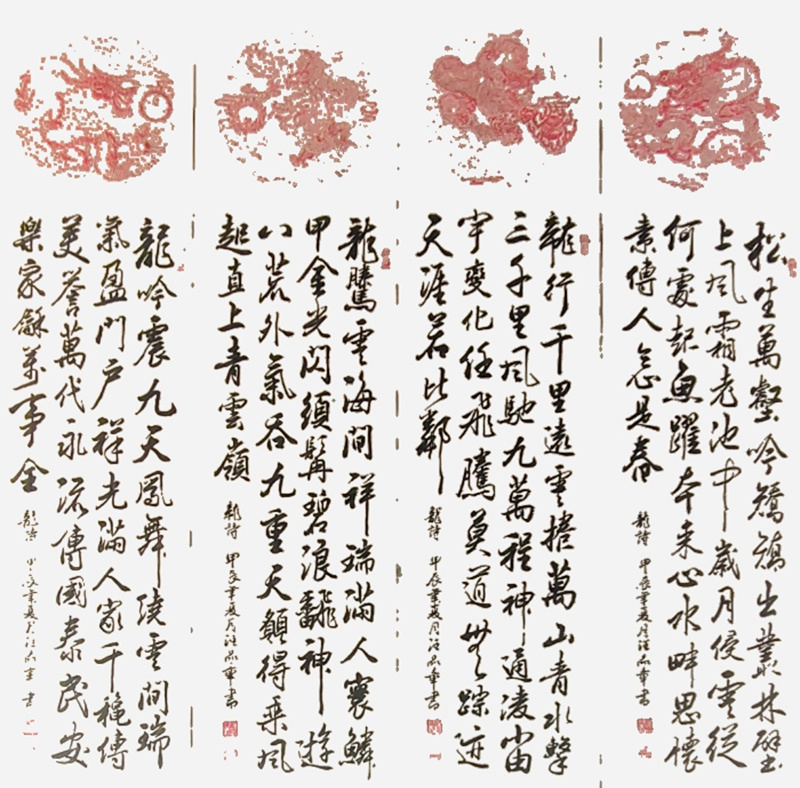 松生萬壑吟矯矯出叢林壁
上風霜老池中歲月侵雲從
何處起魚躍本來心水畔思懷
素傳人是春
龍詩 甲辰夏月書
龍行千里遠雲捲萬山青水擊
三千里風馳九萬程神通凌宙
宇變化任飛騰莫道無踪迹
天涯若比鄰
龍詩 甲辰夏月書
龍騰雲海間祥瑞滿人寰鱗
甲金光閃須髯碧浪翻神遊
八荒外氣吞九重天願得乘風
起直上青雲嶺
龍詩 甲辰夏月書
龍吟震九天鳳舞繞雲間瑞
氣盈門戶祥光滿人家千龝傳
美譽萬代永流傳國泰民安
樂家龢萬事全
龍詩 甲辰夏月書